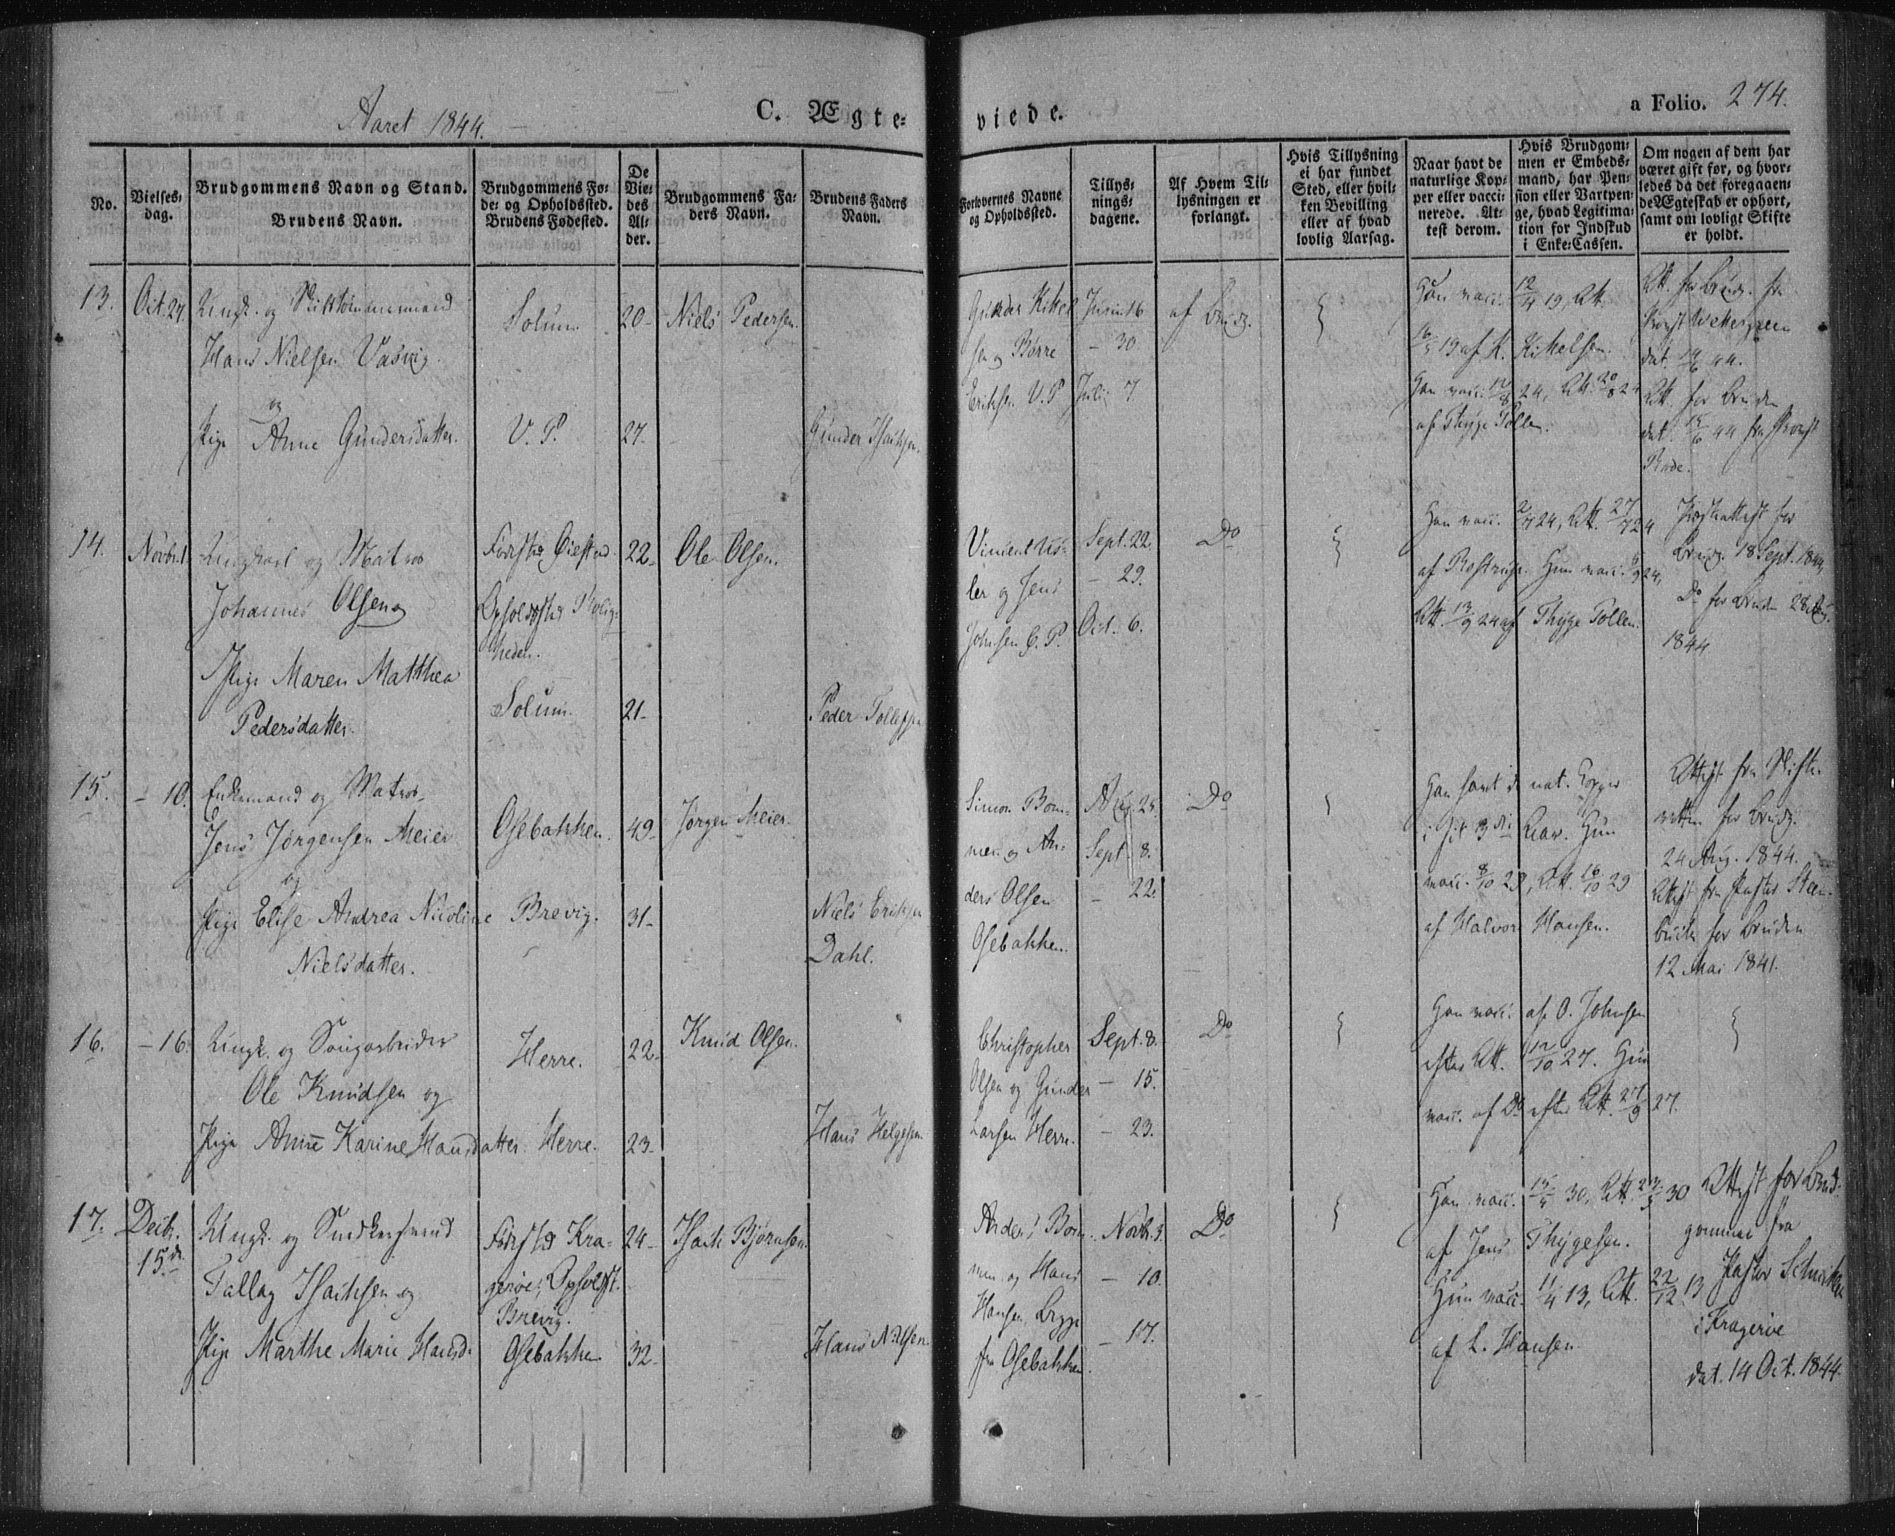 Aaret 1844.
C. Ægte=
viede.
a Folio. 274.
No.
Vielses=
dag.
Brudgommens Navn og Stand.
Brudens Navn.
Brudgommens Fø=
de= og Opholdssted.
Brudens Fødested.
De
Vie=
des
Al=
der.
Brudgommens Fa=
ders Navn.
Brudens Faders
Navn.
Forlovernes Navne
og Opholdssted.
Tillys=
nings=
dagene.
Af Hvem Til=
lysningen er
forlangt.
Hvis Tillysning
ei har fundet
Sted, eller hvil=
ken Bevilling
eller af hvad
lovlig Aarsag.
Naar havt de
naturlige Kop=
per eller vacci=
nerede. At=
test derom.
Hvis Brudgom=
men er Embeds=
mand, har Pen=
sion eller Vartpen=
ge, hvad Legitima=
tion for Indskud
i Enke=Cassen.
Om nogen af dem har
været gift før, og hvor=
ledes da det foregaaen=
de Ægteskab er ophørt,
samt om lovligt Skifte
er holdt.
13. Oct. 27. Ungk. og
Hans Nielsen Vasvig
Solum 20 Niels Pedersen
og
Pige Anne Gundersdatter. V. P. 27. Gunder Isaksen.
Gunder Kittel
sen og Børre
Eriksen V. P.
Juni 16
- 30
Juli 7
af Brudg.
Han vacc. 12/4 19, Att.
af K. Kittelsen.
24, Att. 20/8 24
af Thyge Tollen.
Att. for Brudg. fra
Provst Wettergreen
dat. 44.
Att. for Bruden
dat. 44 fra Provst
Rode.
14. Novbr. 1 Ungkarl og Matros
Johannes Olsen og
Pige Maren Matthea
Pedersdatter.
Fødested
Opholdssted Rolig=
heden.
Solum.
22 Ole Olsen.
21 Peder Tollefsen
Vincent
ler og Jens
Johnsen E. P.
Sept. 22.
- 29.
Oct. 6.
Do
Han vacc. 2/7 24, Att. 27/7 24
af Rostrup. Hun vacc. 24,
Att. 13/9 24 af Thyge Tollen.
Præsteattest for
Brudg. 18 Sept. 1844,
Do for Bruden 28 Aug.
1844
15. - 10. Enkemand og Matros
Jens Jørgensen Meier
og
Pige Elise Andrea Nicoline
Nielsdatter.
Osebakken.
Brevig.
49 Jørgen Meier
31 Niels Eriksen
Dahl.
Simon Bom=
men og An=
ders Olsen
Osebakken.
Aug. 25
Sept. 8.
- 22.
Do
Han havt de nat. Kopper
i sit 3die Aar. Hun
vacc. 8/10 29, Att. 16/10 29
af Halvor Hansen.
Attest fra Skifte=
retten for Brudg.
24 Aug. 1844.
Attest fra Pastor Steen=
buch for Bruden
12 Mai 1841.
16. - 16. Ungk. og Saugarbeider
Ole Knudsen og
Pige Anne Karine Hansdatter Herre.
Herre.
22 Knud Olsen.
23 Hans Helgesen
Christopher
Olsen og Gunder
Larsen Herre.
Sept. 8.
- 15.
- 23.
Do
Han vacc. af O. Johnsen
efter Att. 12/10 27. Hun
vacc. af Do efter Att. 27/9 27.
17. Decbr.
15de
Ungk. og Snedkersvend
Tallag Isachsen og
Pige Marthe Marie Hansd.
Fødested Kra=
gerøe, Opholdsst.
Brevig.
Osebakken
24 Isach Bjørnsen.
32 Hans Nilsen.
Anders Bom=
men og Hans
Hansen Brygge
fra Osebakken.
Novbr. 3.
- 10.
- 17.
Do
Han vacc. 30, Att. 30
af Jens Thygesen.
Hun vacc. 11/4 13, Att. 22/12 13
af L. Hansen
Attest for Brud=
gommen fra
Pastor
i Kragerøe
dat. 14 Oct. 1844.